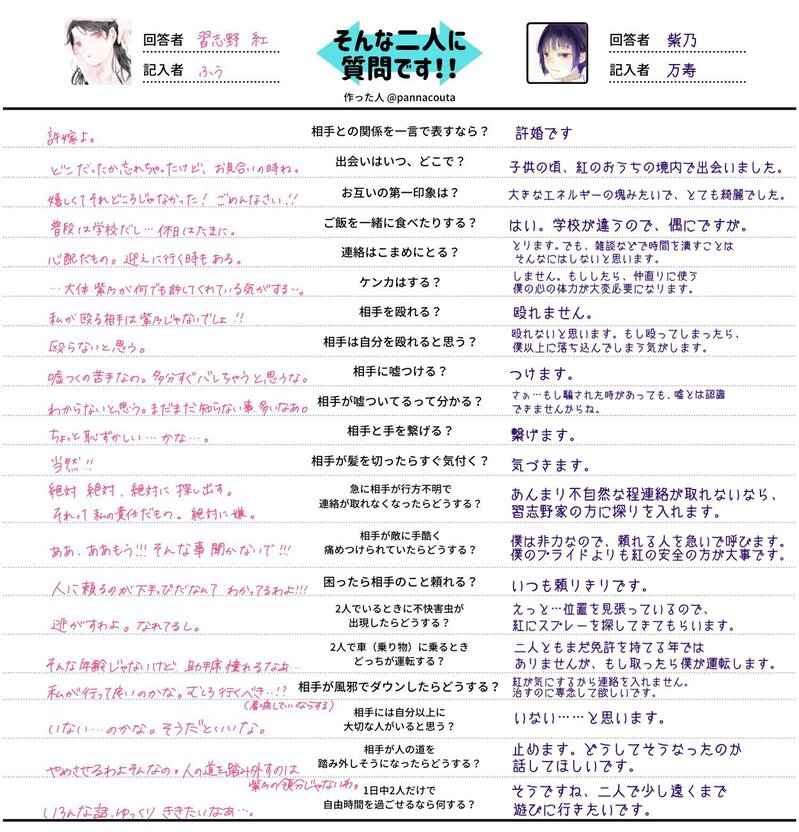 回答者 習志野 紅
記入者 ふう
そんな二人に
質問です!!
作った人 @pannacouta
回答者 紫乃
記入者 万寿
許嫁よ。
相手との関係を一言で表すなら？
許婚です
どこだったか忘れちゃったけど、お見合いの時ね。
出会いはいつ、どこで？
子供の頃、紅のおうちの境内で出会いました。
嬉しくてそれどころじゃなかった！ごめんなさい!!
お互いの第一印象は？
大きなエネルギーの塊みたいで、とても綺麗でした。
普段は学校だし…休日はたまに。
ご飯を一緒に食べたりする？
はい。学校が違うので、偶にですが。
心配だもの。迎えに行く時もある。
連絡はこまめにとる？
とります。でも、雑談などで時間を潰すことは
そんなにはしないと思います。
…大体紫乃が何でも許してくれている気がする…。
ケンカはする？
しません。もししたら、仲直りに使う
僕の心の体力が大変必要になります。
私が殴る相手は紫乃じゃないでしょ!!
相手を殴れる？
殴れません。
殴らないと思う。
相手は自分を殴れると思う？
殴れないと思います。もし殴ってしまったら、
僕以上に落ち込んでしまう気がします。
嘘つくの苦手なの。多分すぐバレちゃうと思うな。
相手に嘘つける？
つけます。
わからないと思う。まだまだ知らない事多いなあ。
相手が嘘ついてるって分かる？
さぁ…もし騙された時があっても、嘘とは認識
できませんからね。
ちょっと恥ずかしい…かな…。
相手と手を繋げる？
繋げます。
当然!!
相手が髪を切ったらすぐ気付く？
気づきます。
絶対 絶対、絶対に探し出す。
それって私の責任だもの。絶対に嫌。
急に相手が行方不明で
連絡が取れなくなったらどうする？
あんまり不自然な程連絡が取れないなら、
習志野家の方に探りを入れます。
ああ、ああもう!!! そんな事聞かないで!!!
相手が敵に手酷く
痛めつけられていたらどうする？
僕は非力なので、頼れる人を急いで呼びます。
僕のプライドよりも紅の安全の方が大事です。
人に頼るのが下手っぴだなんて わかってるわよ!!!
困ったら相手のこと頼れる？
いつも頼りきりです。
逃がすわよ。なれてるし。
2人でいるときに不快害虫が
出現したらどうする？
えっと…位置を見張っているので、
紅にスプレーを探してきてもらいます。
そんな年齢じゃないけど 助手席憧れるなぁ…
2人で車（乗り物）に乗るとき
どっちが運転する？
二人ともまだ免許を持てる年では
ありませんが、もし取ったら僕が運転します。
私が行って良いのかな。むしろ行くべき…!?
(看病していいならする)
相手が風邪でダウンしたらどうする？
紅が気にするから連絡を入れません。
治すのに専念して欲しいです。
いない…のかな。そうだといいな。
相手には自分以上に
大切な人がいると思う？
いない……と思います。
やめさせるわよそんなの。人の道を踏み外すのは
紫乃の領分じゃないわ。
相手が人の道を
踏み外しそうになったらどうする？
止めます。どうしてそうなったのか
話してほしいです。
いろんな話、ゆっくり ききたいなあ…。
1日中2人だけで
自由時間を過ごせるなら何する？
そうですね、二人で少し遠くまで
遊びに行きたいです。